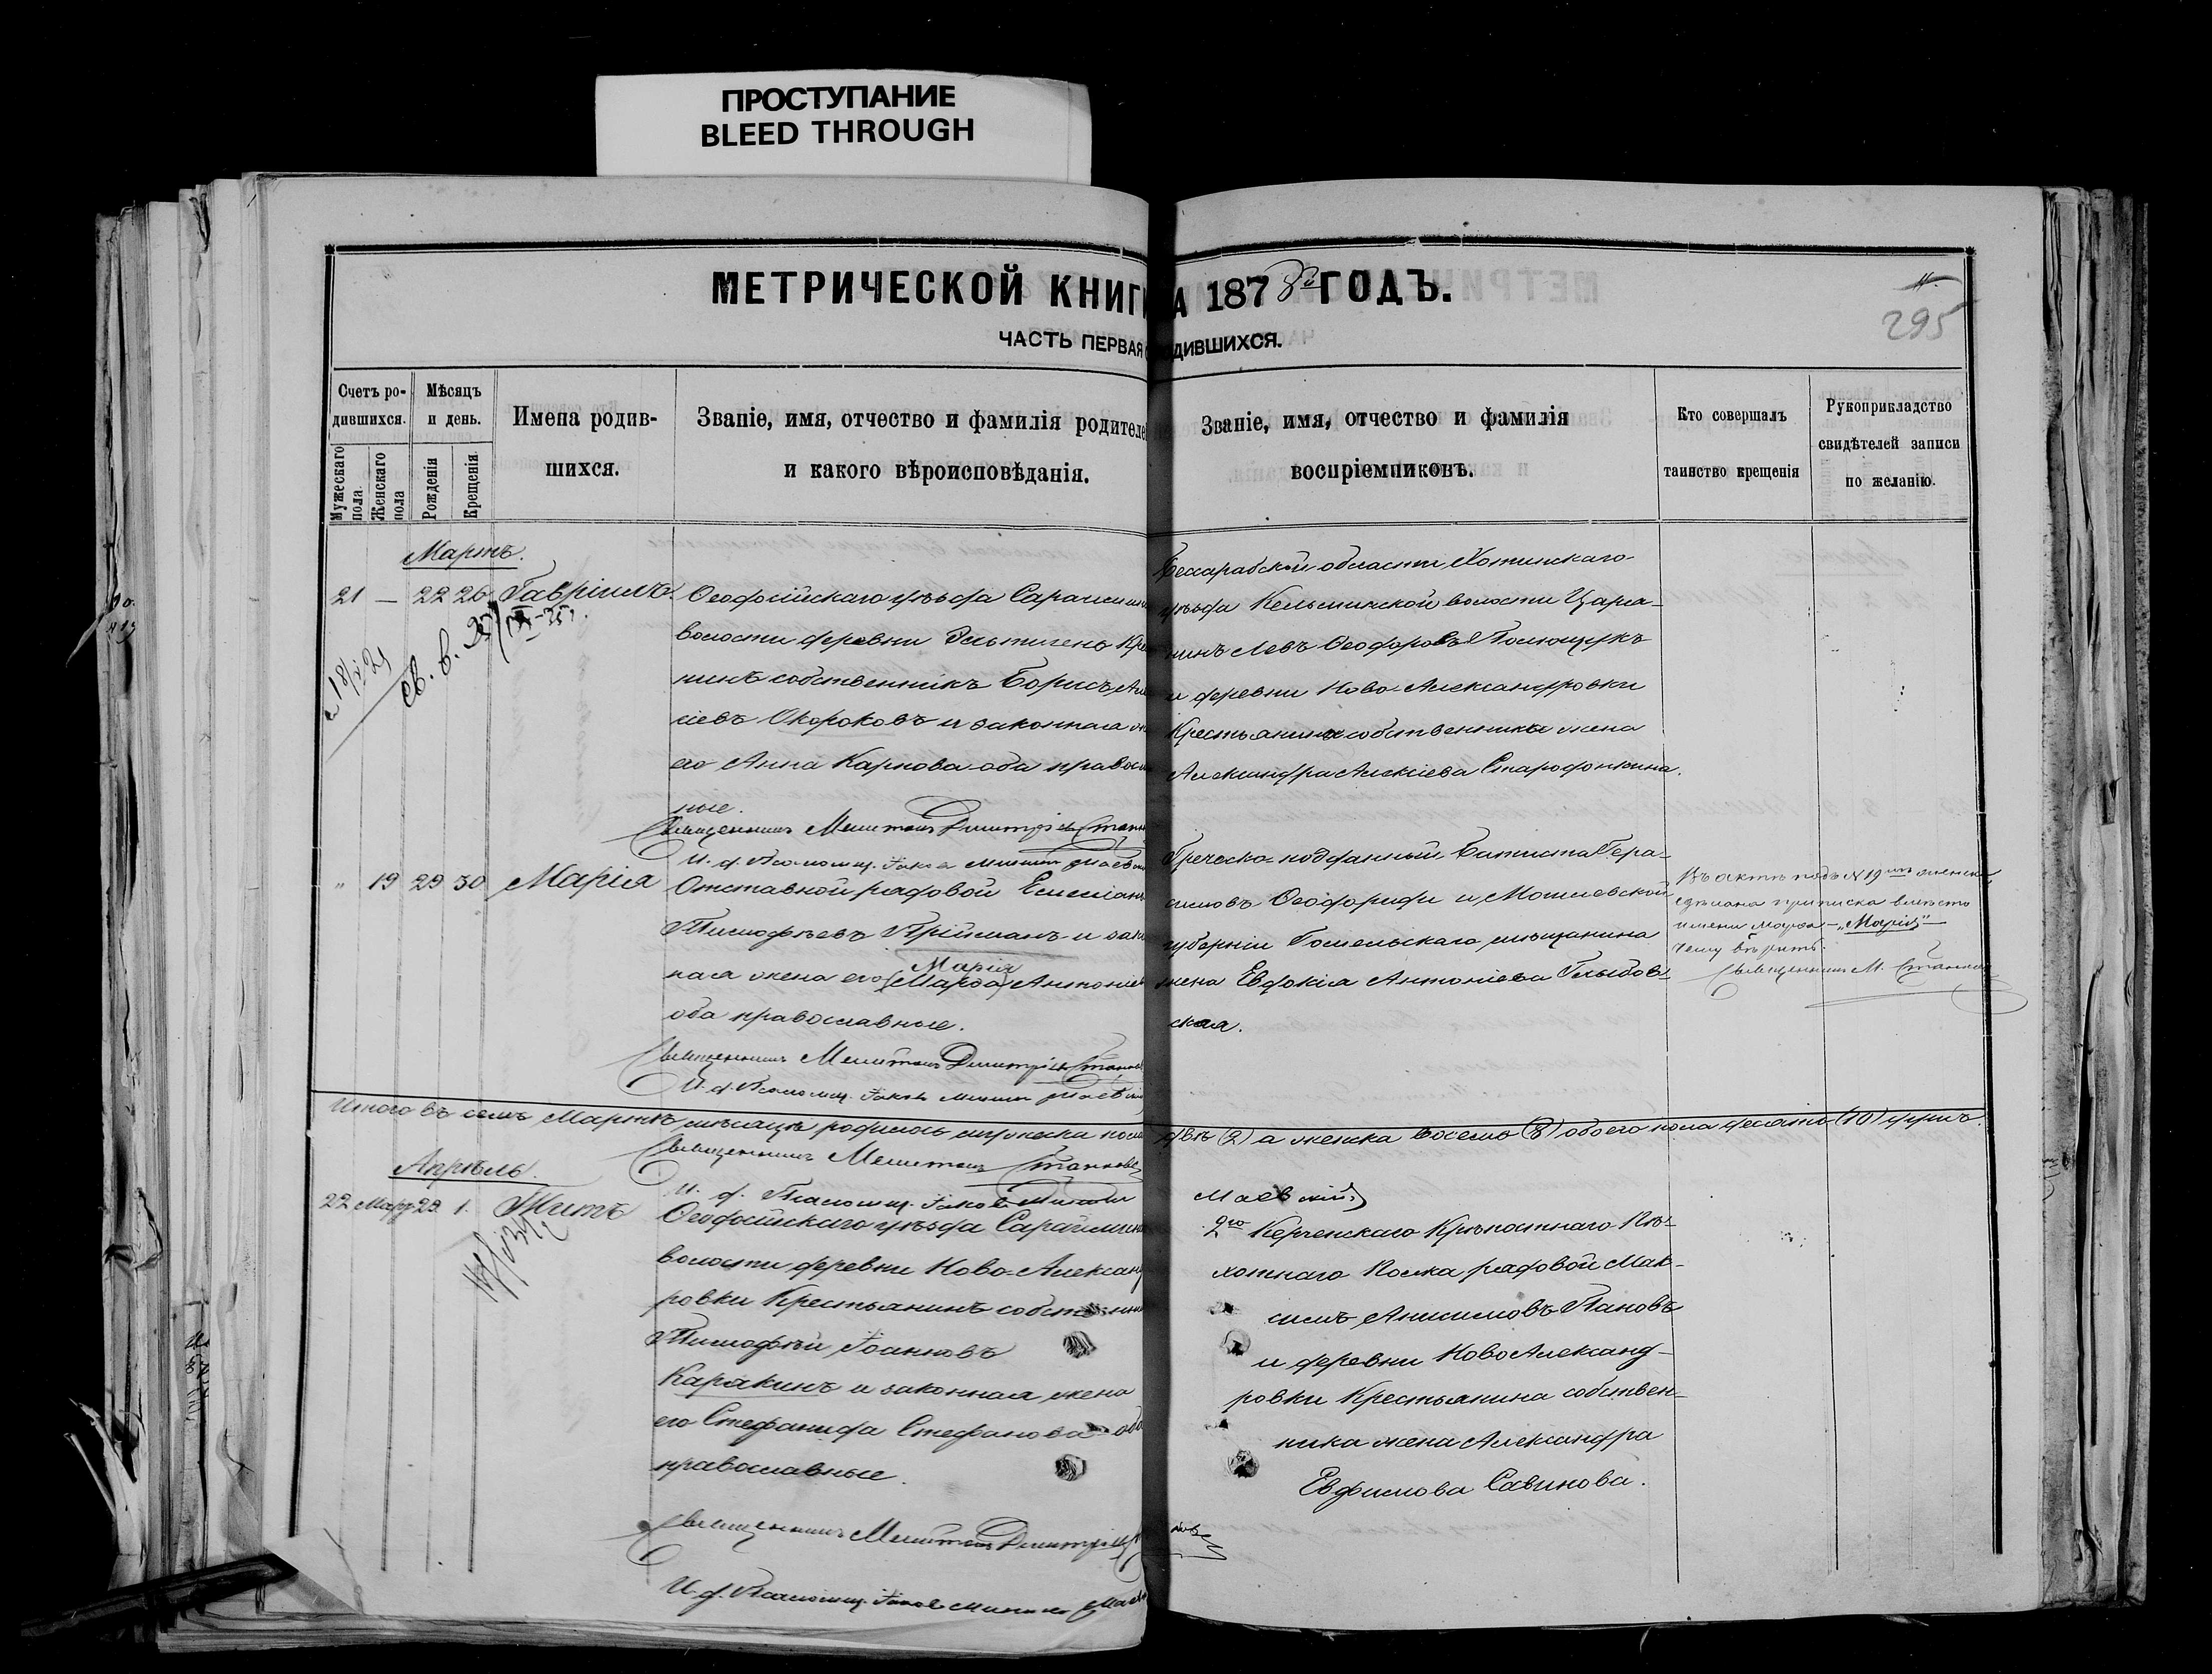 ПРОСТУПАНИЕ
BLEED THROUGH
МЕТРИЧЕСКОЙ КНИГ
А 1878й ГОДЪ.
ЧАСТЬ ПЕРВАЯ
ДИВШИХСЯ.
295
Счетъ ро-
дившихся.
Мужескаго пола.
Женскаго пола
Мѣсяцъ
и день.
Рожденія
Крещенія.
Имена родив-
шихся.
Званіе, имя, отчество и фамилія родителе
и какого вѣроисповѣданія.
Званіе, имя, отчество и фамилія
воспріемниковъ.
Кто совершалъ
таинство крещенія
Рукоприкладство
свидѣтелей записи
по желанію.
Мартъ.
21 — 22 26 Гавріилъ.
Ѳеодосійскаго уѣзда
волости деревни Эльтигенъ Кре
нинъ собственникъ Борисъ
сіевъ Окороковъ и законная
его Анна Карпова оба правос
ные.
Священникъ Мелитонъ Димитріевъ
И. д. Псаломщ. Іаковъ
Бессарабской области Хотинскаго
уѣзда Кельминской волости Цара-
нинъ Левъ Ѳеодоровъ Полющукъ
и деревни Ново-Александровки
Крестьянина собственника жена
Александра Алексіева
" 19 29 30 Марія
Отставной рядовой Емеліанъ
Тимофѣевъ Прійманъ и зако
Марія
ная жена его (Марфа) Антоніев
оба православные.
Священникъ Мелитонъ Димитріевъ
И. д. Псаломщ. Іаковъ
Греческо-подданный Батиста Гера-
симовъ Ѳеодориди и Могилевской
губерніи Гомельскаго мѣщанина
жена Евдокія Антоніева Глыбов-
ская.
Въ актѣ подъ N 19мъ женск.
сдѣлана приписка вмѣсто
имени Марфа — „Марія"
чему вѣрить.
Священникъ М.
Итого въ семъ Мартѣ мѣсяцѣ родилось мужеска пола
двѣ (2) а женска восемь (8) обоего пола десять (10) душъ.
Священникъ Мелитонъ
И. д. Псаломщ. Іаковъ
Маевскій
Апрѣль.
22 Март 29. 1. Титъ
Ѳеодосійскаго уѣзда
волости деревни Ново-Александ
ровки Крестьянинъ
Тимофѣй Іоанновъ
Карякинъ и законная жена
его Стефанида Стефанова
православные.
Священникъ Мелитонъ
И. д. Псаломщ. Іаковъ
2го Керченскаго Крѣпостнаго Пѣ-
хотнаго Полка рядовой Мак-
симъ Анисимовъ Пановъ
и деревни Ново Александ-
ровки Крестьянина собствен-
ника жена Александра
Евфимова Савинова.